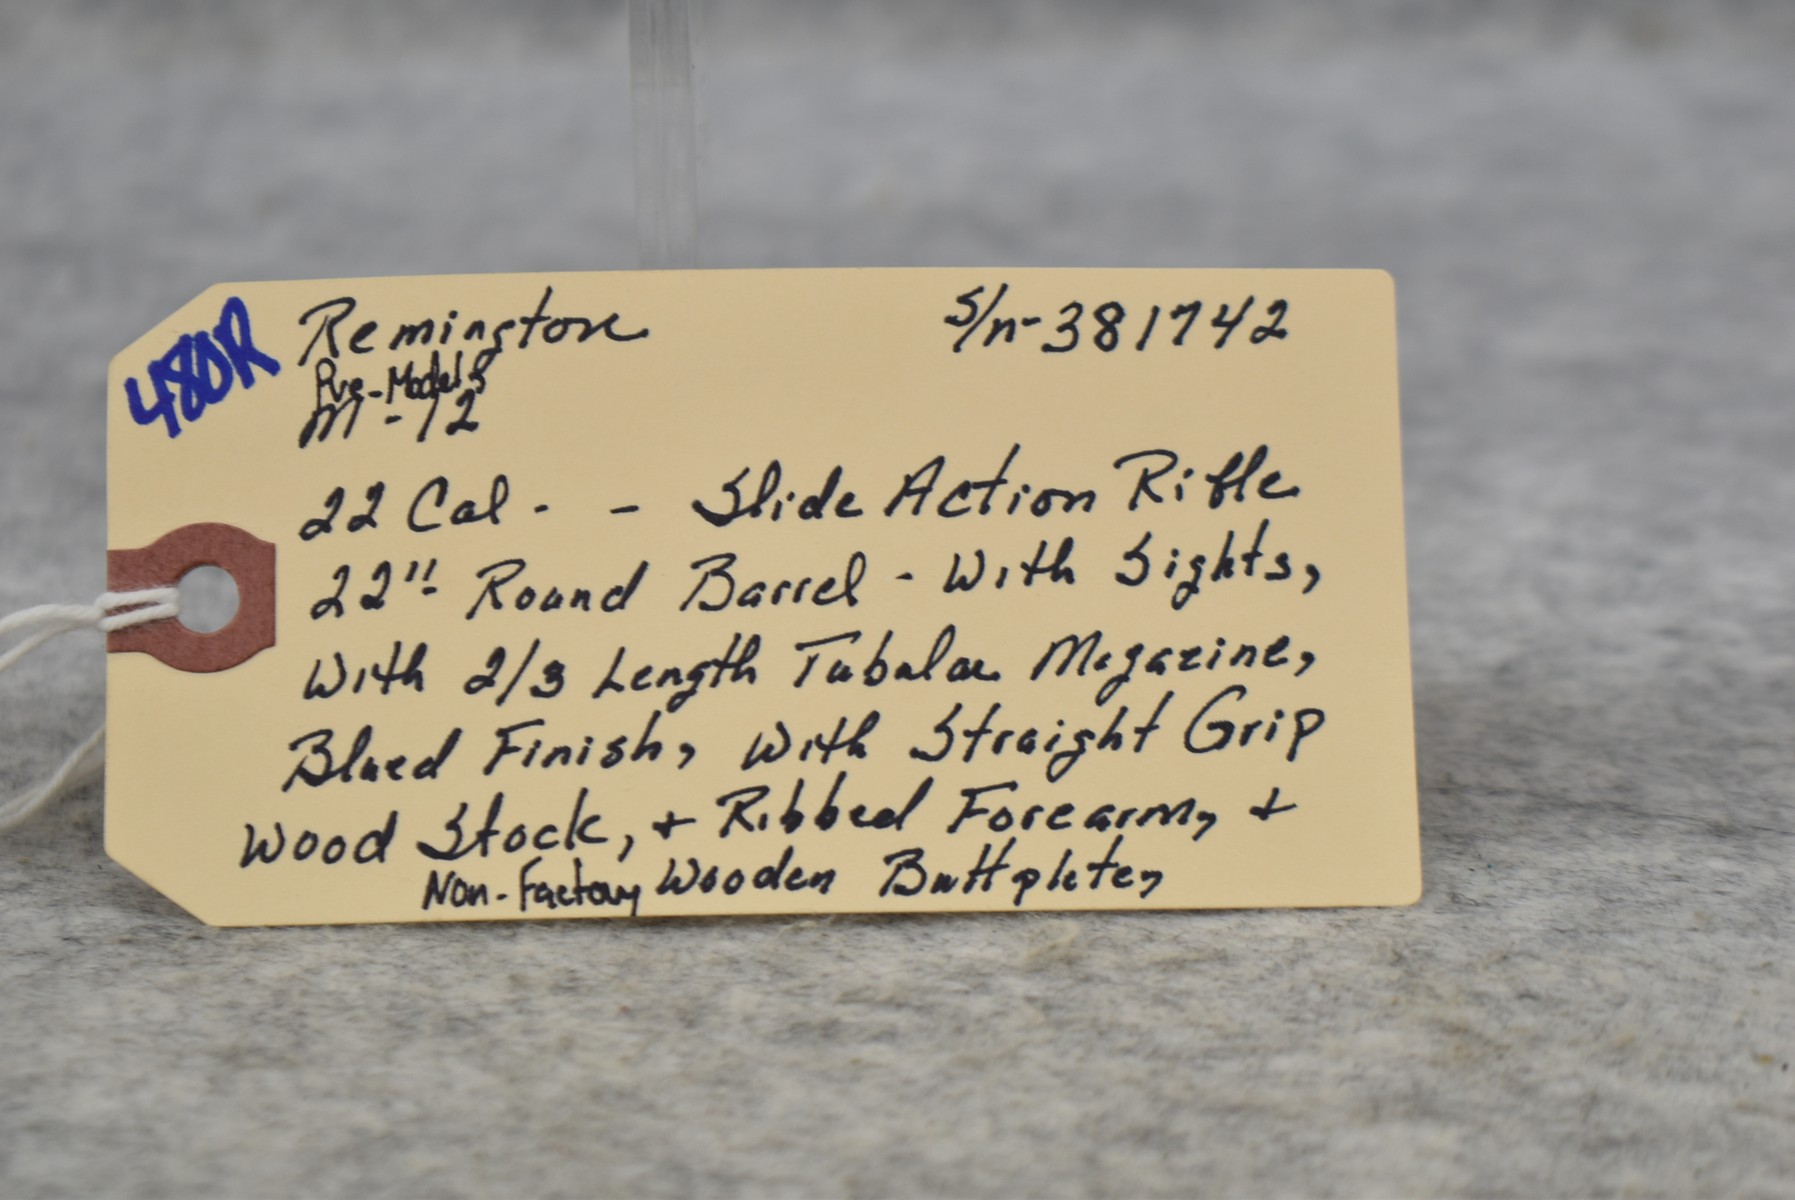 480R
Remington S/n-381742
Pre-Models
M-12
22 Cal. - Slide Action Rifle
22" Round Barrel - With Sights,
With 2/3 Length Tubular Magazine,
Blued Finish, With Straight Grip
Wood Stock, + Ribbed Forearm, +
Non-Factory Wooden Buttplate,